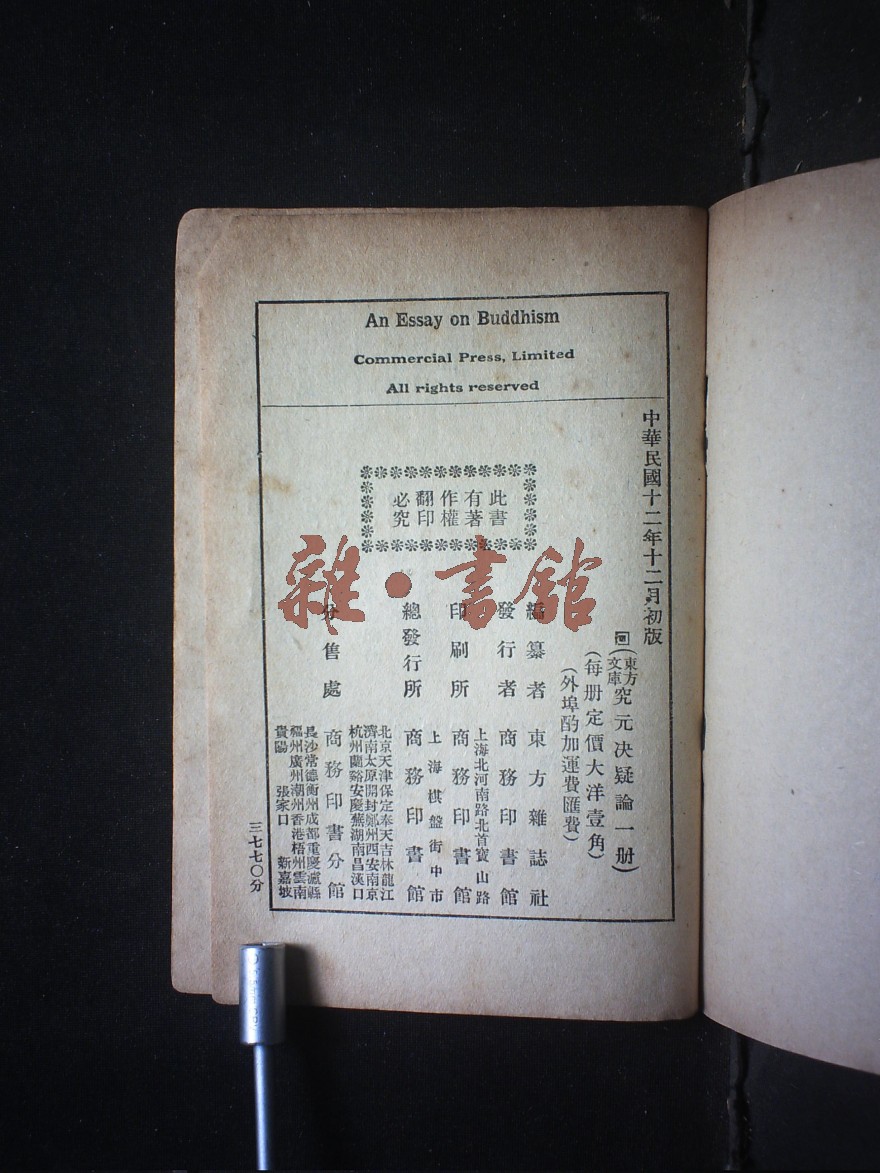 An Essay on Buddhism
Commercial Press, Limited
All rights reserved
中華民國十二年十二月初版
(東方文庫)究元决疑論一册)
(每册定價大洋壹角)
(外埠酌加運費匯費)
此書
有著
作權
翻印
必究
編纂者 東方雜誌社
發行者 商務印書館
上海北河南路北首寶山路
印刷所 商務印書館
上海棋盤街中市
總發行所 商務印書館
分售處 商務印書分館
北京天津保定奉天吉林龍江
濟南太原開封鄭州西安南京
杭州蘭谿安慶蕪湖南昌漢口
長沙常德衡州成都重慶瀘縣
福州廣州潮州香港梧州雲南
貴陽 張家口 新嘉坡
三七七〇分
雜·書館